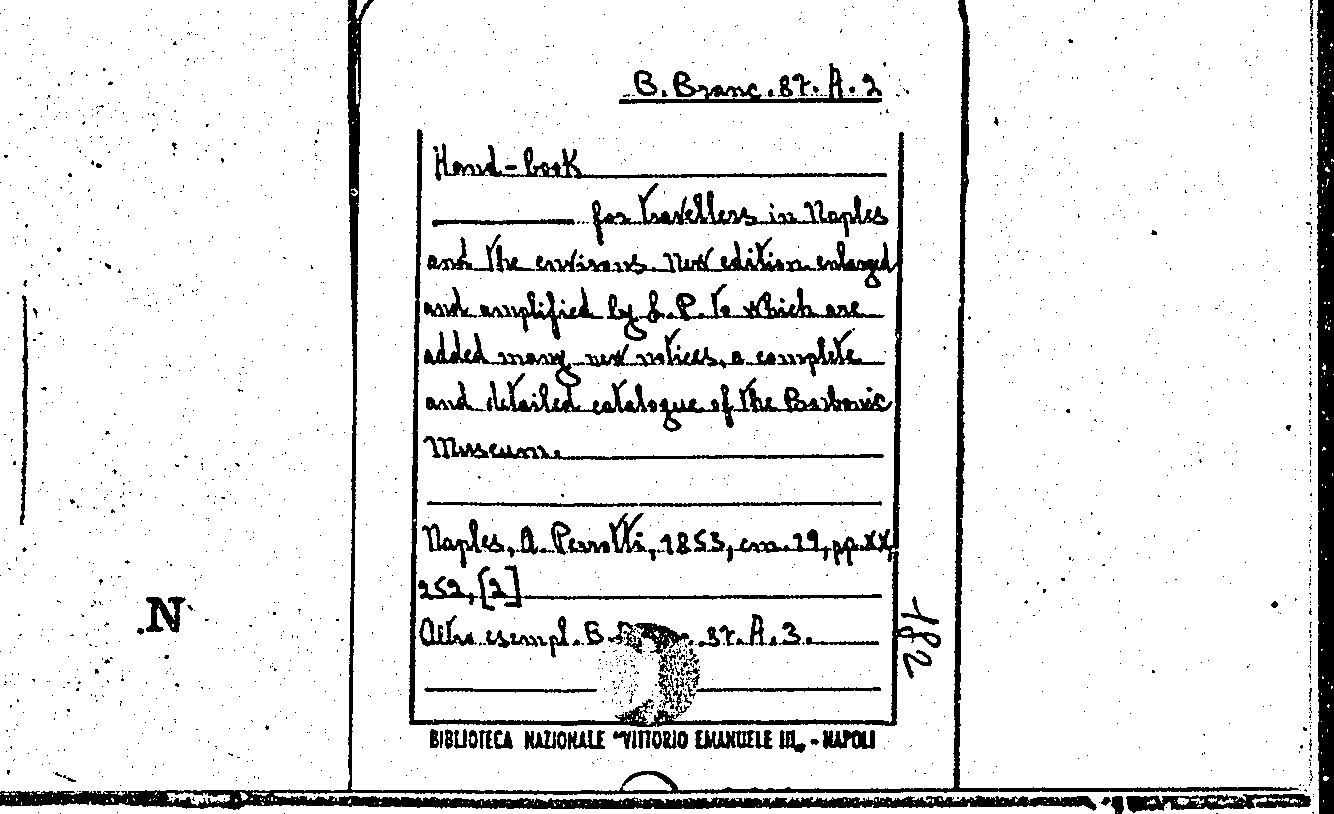 B. Branc. 87. A. 2
Hand-book
for travellers in Naples
and the environs. New edition enlarged
and amplified by L. P. to which are
added many new notices, a complete
and detailed catalogue of the Borbonic
Museum.
Naples, A. Perrotti, 1853, cm. 19, pp. XX,
252, [2]
Altro esempl. B. 87. A. 3.
182
.N
BIBLIOTECA NAZIONALE "VITTORIO EMANUELE III„ - NAPOLI